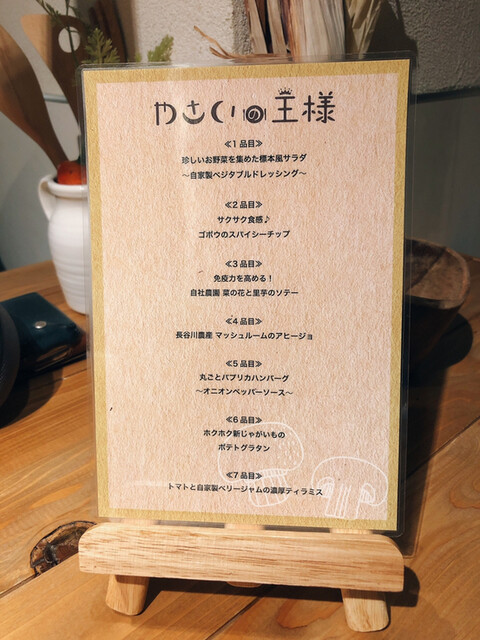 やさいの王様
≪1品目≫
珍しいお野菜を集めた標本風サラダ
〜自家製ベジタブルドレッシング〜
≪2品目≫
サクサク食感♪
ゴボウのスパイシーチップ
≪3品目≫
免疫力を高める！
自社農園 菜の花と里芋のソテー
≪4品目≫
長谷川農産 マッシュルームのアヒージョ
≪5品目≫
丸ごとパプリカハンバーグ
〜オニオンペッパーソース〜
≪6品目≫
ホクホク新じゃがいもの
ポテトグラタン
≪7品目≫
トマトと自家製ベリージャムの濃厚ティラミス